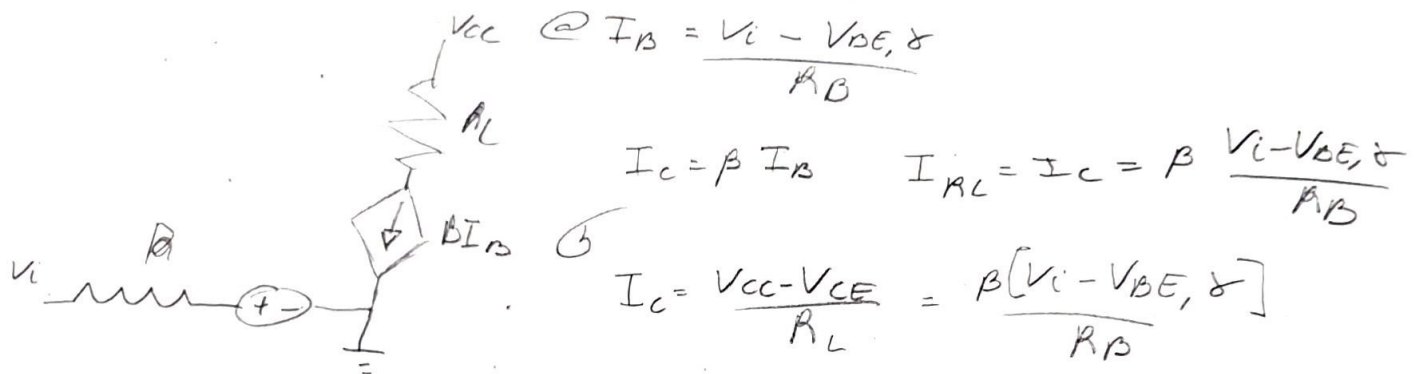 Vcc
ⓐ I_B = (Vi - V_BE,γ) / R_B
R_L
I_C = β I_B    I_RL = I_C = β (Vi - V_BE,γ) / R_B
βI_B
ⓑ I_C = (Vcc - V_CE) / R_L = β[Vi - V_BE,γ] / R_B
Vi
+ -